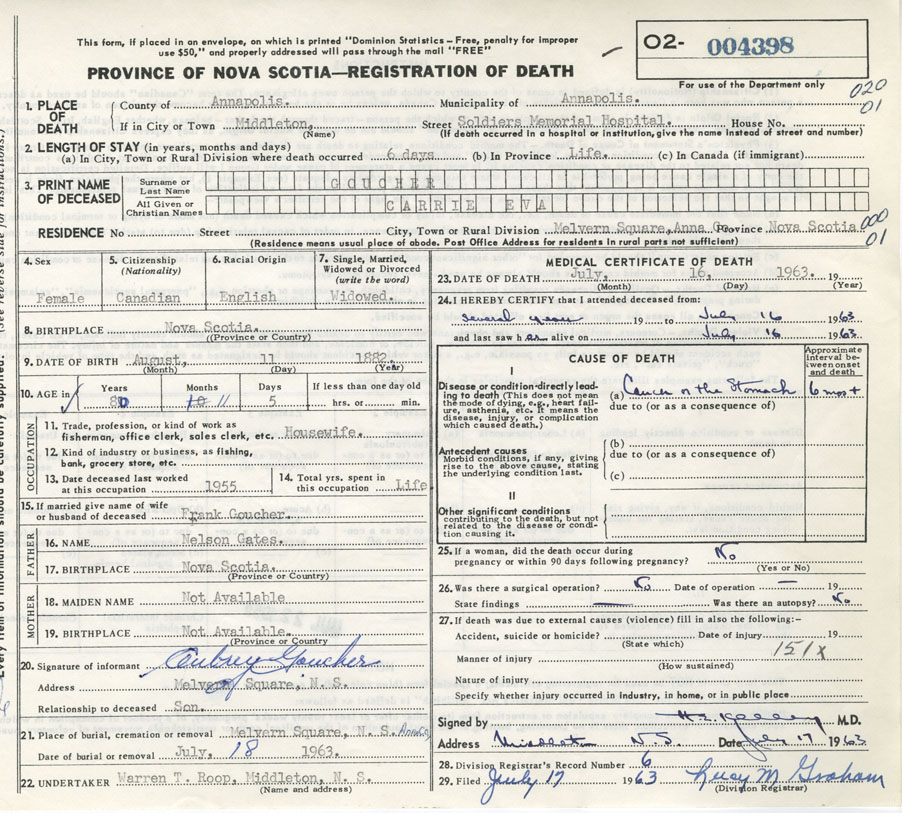 This form, if placed in an envelope, on which is printed "Dominion Statistics – Free, penalty for improper
use $50," and properly addressed will pass through the mail "FREE"
O2- 004398
For use of the Department only
PROVINCE OF NOVA SCOTIA—REGISTRATION OF DEATH
020
01
1. PLACE OF DEATH
County of Annapolis. Municipality of Annapolis.
If in City or Town Middleton, Street Soldiers Memorial Hospital. House No.
(Name) (If death occurred in a hospital or institution, give the name instead of street and number)
2. LENGTH OF STAY (in years, months and days)
(a) In City, Town or Rural Division where death occurred 6 days (b) In Province Life. (c) In Canada (if immigrant)
3. PRINT NAME OF DECEASED
Surname or Last Name GOUCHER
All Given or Christian Names CARRIE EVA
RESIDENCE No Street City, Town or Rural Division Melvern Square, Anna Co. Province Nova Scotia
000
01
(Residence means usual place of abode. Post Office Address for residents in rural parts not sufficient)
4. Sex
Female
5. Citizenship
(Nationality)
Canadian
6. Racial Origin
English
7. Single, Married,
Widowed or Divorced
(write the word)
Widowed.
8. BIRTHPLACE Nova Scotia.
(Province or Country)
9. DATE OF BIRTH August, 11 1882
(Month) (Day) (Year)
10. AGE in
Years Months Days If less than one day old
80 10 11 5 hrs. or min.
OCCUPATION
11. Trade, profession, or kind of work as
fisherman, office clerk, sales clerk, etc. Housewife.
12. Kind of industry or business, as fishing,
bank, grocery store, etc.
13. Date deceased last worked
at this occupation 1955
14. Total yrs. spent in
this occupation Life
15. If married give name of wife
or husband of deceased Frank Goucher.
FATHER
16. NAME Nelson Gates.
17. BIRTHPLACE Nova Scotia.
(Province or Country)
MOTHER
18. MAIDEN NAME Not Available
19. BIRTHPLACE Not Available.
(Province or Country)
20. Signature of informant Aubrey Goucher
Address Melvern Square, N. S.
Relationship to deceased Son.
21. Place of burial, cremation or removal Melvern Square, N. S. Anna Co.
Date of burial or removal July, 18 1963.
22. UNDERTAKER Warren T. Roop, Middleton, N. S.
(Name and address)
MEDICAL CERTIFICATE OF DEATH
23. DATE OF DEATH July, 16, 1963. 19
(Month) (Day) (Year)
24. I HEREBY CERTIFY that I attended deceased from:
several years 19 to July 16 1963
and last saw her alive on July 16 1963
CAUSE OF DEATH
Approximate
interval be-
tween onset
and death
I
Disease or condition directly lead-
ing to death (This does not mean
the mode of dying, e.g., heart fail-
ure, asthenia, etc. It means the
disease, injury, or complication
which caused death.)
(a) Cancer of the Stomach 6 mos +
due to (or as a consequence of)
Antecedent causes
Morbid conditions, if any, giving
rise to the above cause, stating
the underlying condition last.
(b)
due to (or as a consequence of)
(c)
II
Other significant conditions
contributing to the death, but not
related to the disease or condi-
tion causing it.
25. If a woman, did the death occur during
pregnancy or within 90 days following pregnancy? No
(Yes or No)
26. Was there a surgical operation? No Date of operation — 19
State findings — Was there an autopsy? No
27. If death was due to external causes (violence) fill in also the following:–
Accident, suicide or homicide? Date of injury 19
(State which)
151x
Manner of injury
(How sustained)
Nature of injury
Specify whether injury occurred in industry, in home, or in public place
Signed by H. E. Kelley M.D.
Address Middleton N.S. Date July 17 1963
28. Division Registrar's Record Number 6
29. Filed July 17 1963 Lucy M Graham
(Division Registrar)